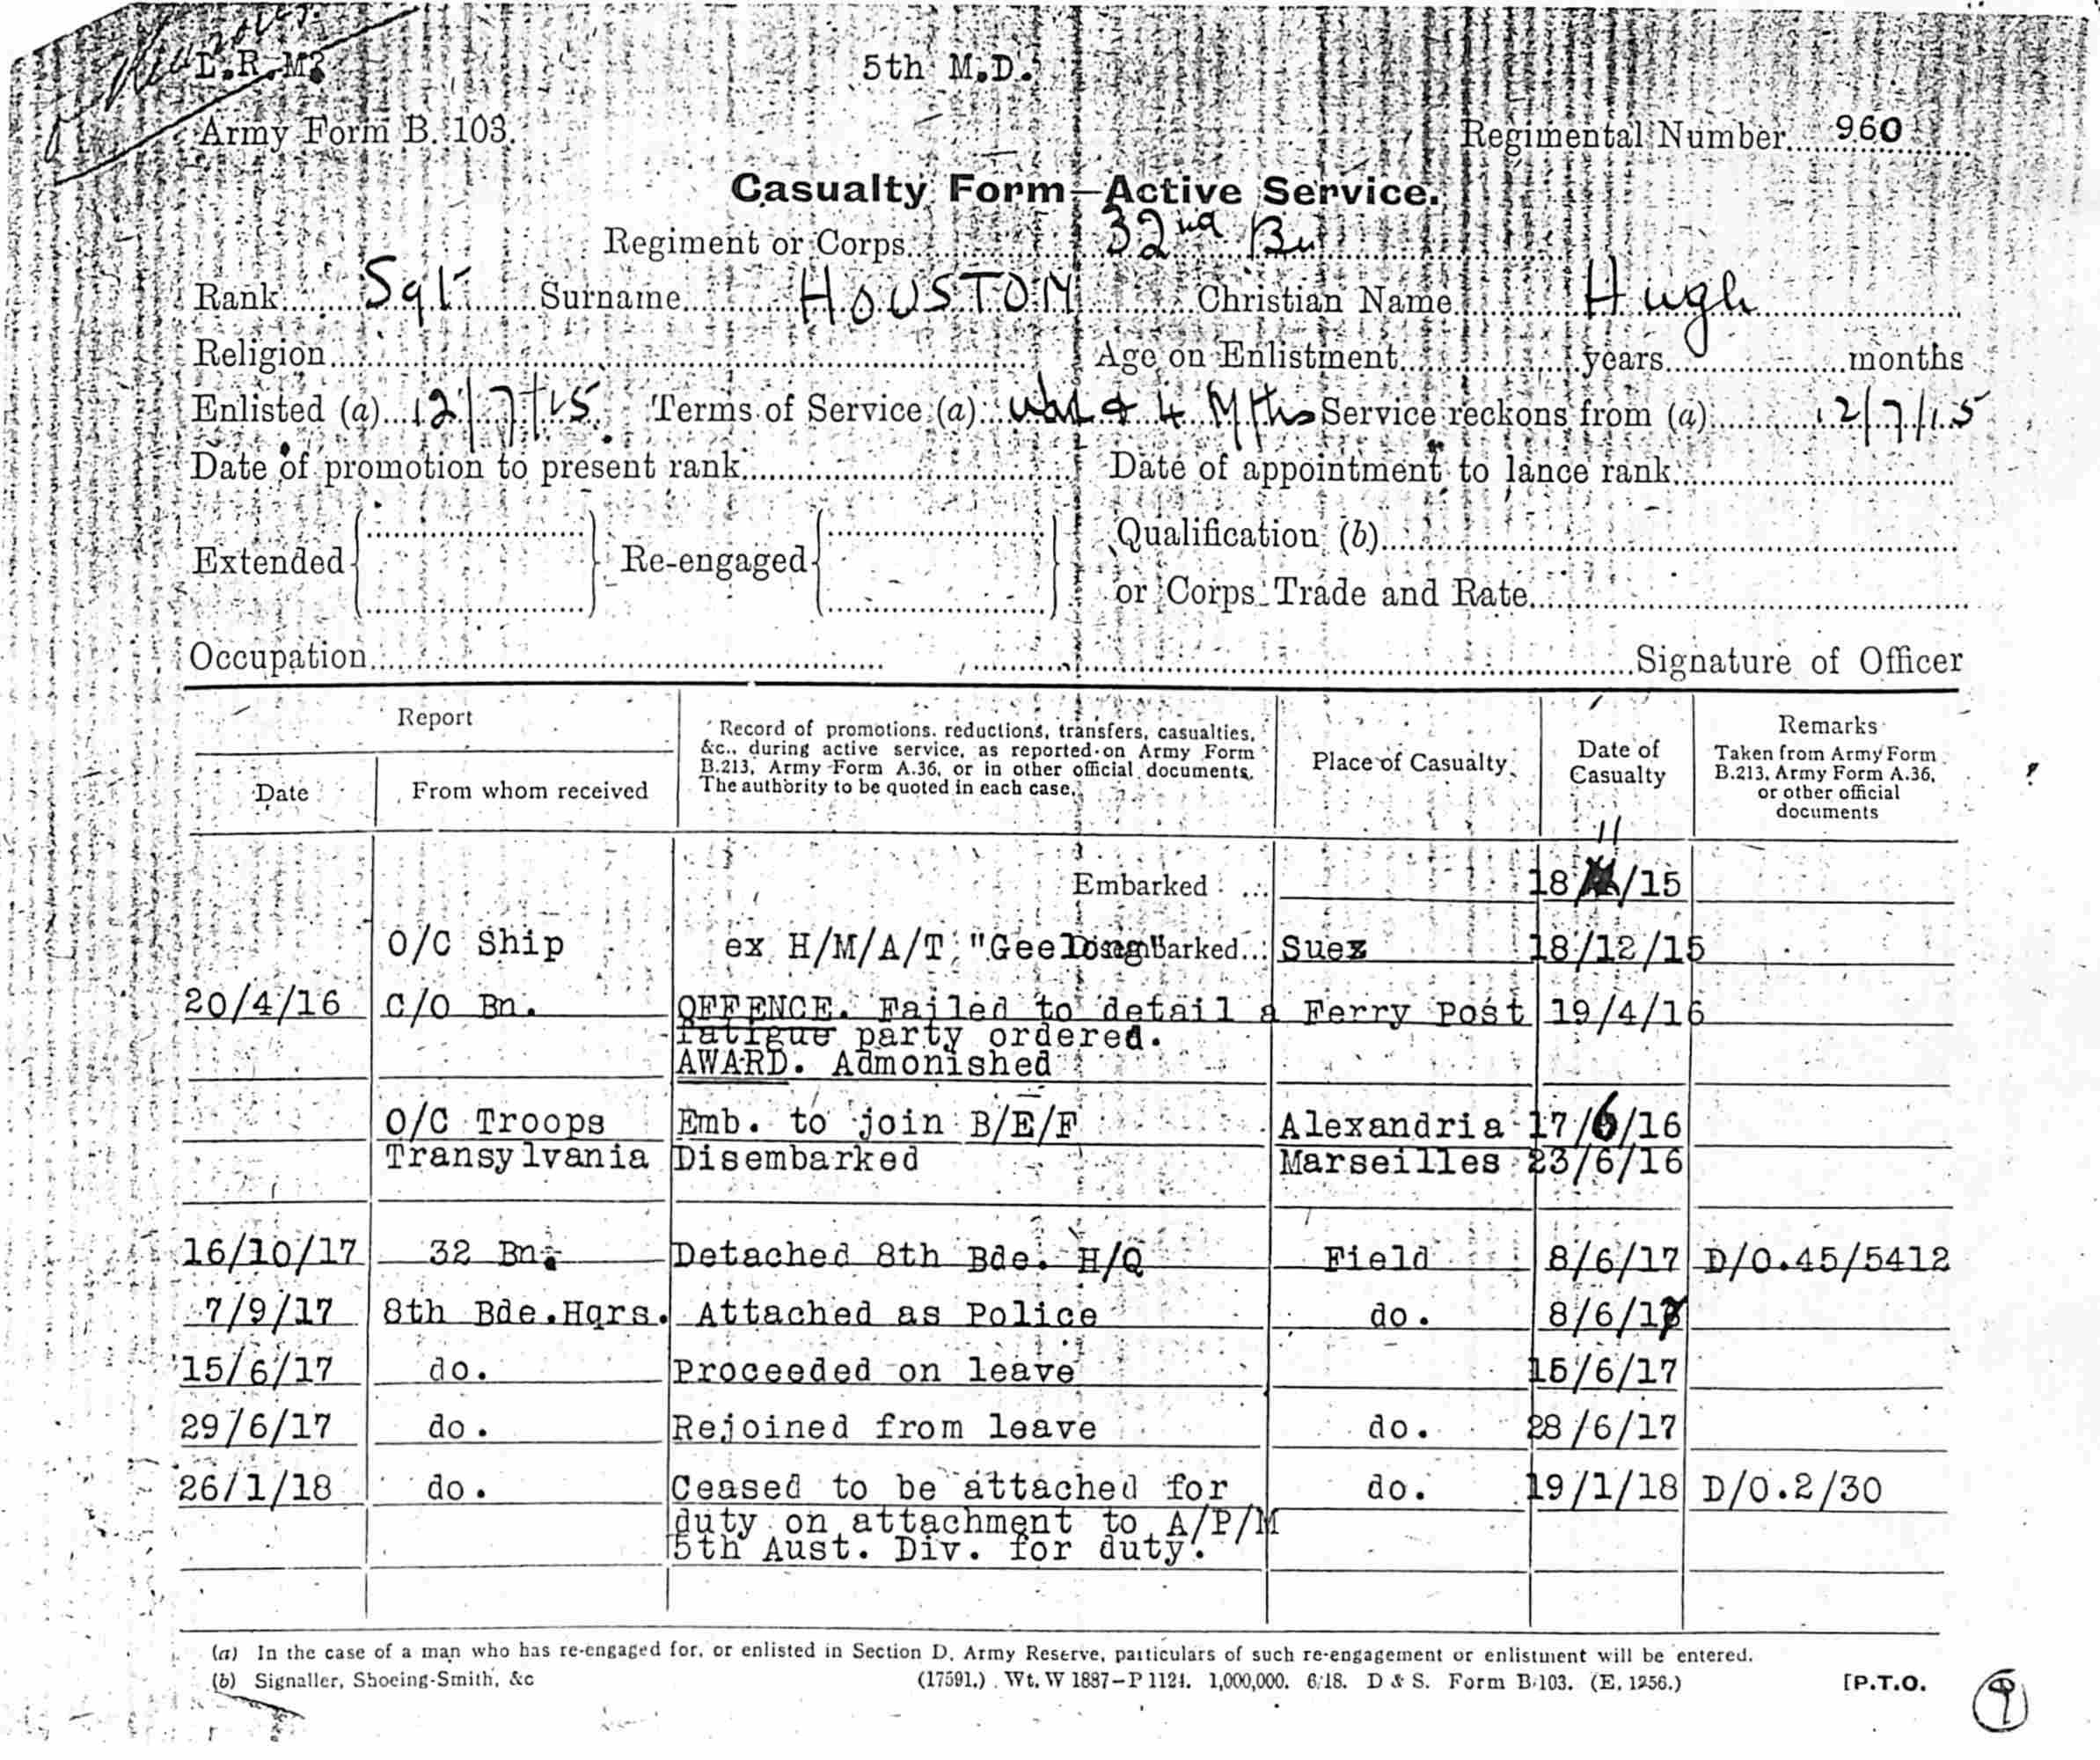 L.R.M?
5th M.D.
Army Form B. 103.
Regimental Number 960
Casualty Form—Active Service.
Regiment or Corps 32nd Bn
Rank Sgt Surname HOUSTON Christian Name Hugh
Religion Age on Enlistment years months
Enlisted (a) 12/7/15 Terms of Service (a) War & 4 Mths Service reckons from (a) 12/7/15
Date of promotion to present rank Date of appointment to lance rank
Extended Re-engaged Qualification (b)
or Corps Trade and Rate
Occupation Signature of Officer
Report
Date
From whom received
Record of promotions, reductions, transfers, casualties,
&c., during active service, as reported on Army Form
B.213, Army Form A.36, or in other official documents.
The authority to be quoted in each case.
Place of Casualty
Date of
Casualty
Remarks
Taken from Army Form
B.213, Army Form A.36,
or other official
documents
11
Embarked ... 18/ /15
O/C Ship ex H/M/A/T "Geelong" Disembarked... Suez 18/12/15
20/4/16 C/O Bn. OFFENCE. Failed to detail a Ferry Post 19/4/16
fatigue party ordered.
AWARD. Admonished
O/C Troops Emb. to join B/E/F Alexandria 17/6/16
Transylvania Disembarked Marseilles 23/6/16
16/10/17 32 Bn. Detached 8th Bde. H/Q Field 8/6/17 D/O.45/5412
7/9/17 8th Bde.Hqrs. Attached as Police do. 8/6/17
15/6/17 do. Proceeded on leave 15/6/17
29/6/17 do. Rejoined from leave do. 28/6/17
26/1/18 do. Ceased to be attached for do. 19/1/18 D/O.2/30
duty on attachment to A/P/M
5th Aust. Div. for duty.
(a) In the case of a man who has re-engaged for, or enlisted in Section D, Army Reserve, particulars of such re-engagement or enlistment will be entered.
(b) Signaller, Shoeing-Smith, &c (17591.) Wt. W 1887—P 1124. 1,000,000. 6/18. D & S. Form B/103. (E. 1256.) [P.T.O.
9